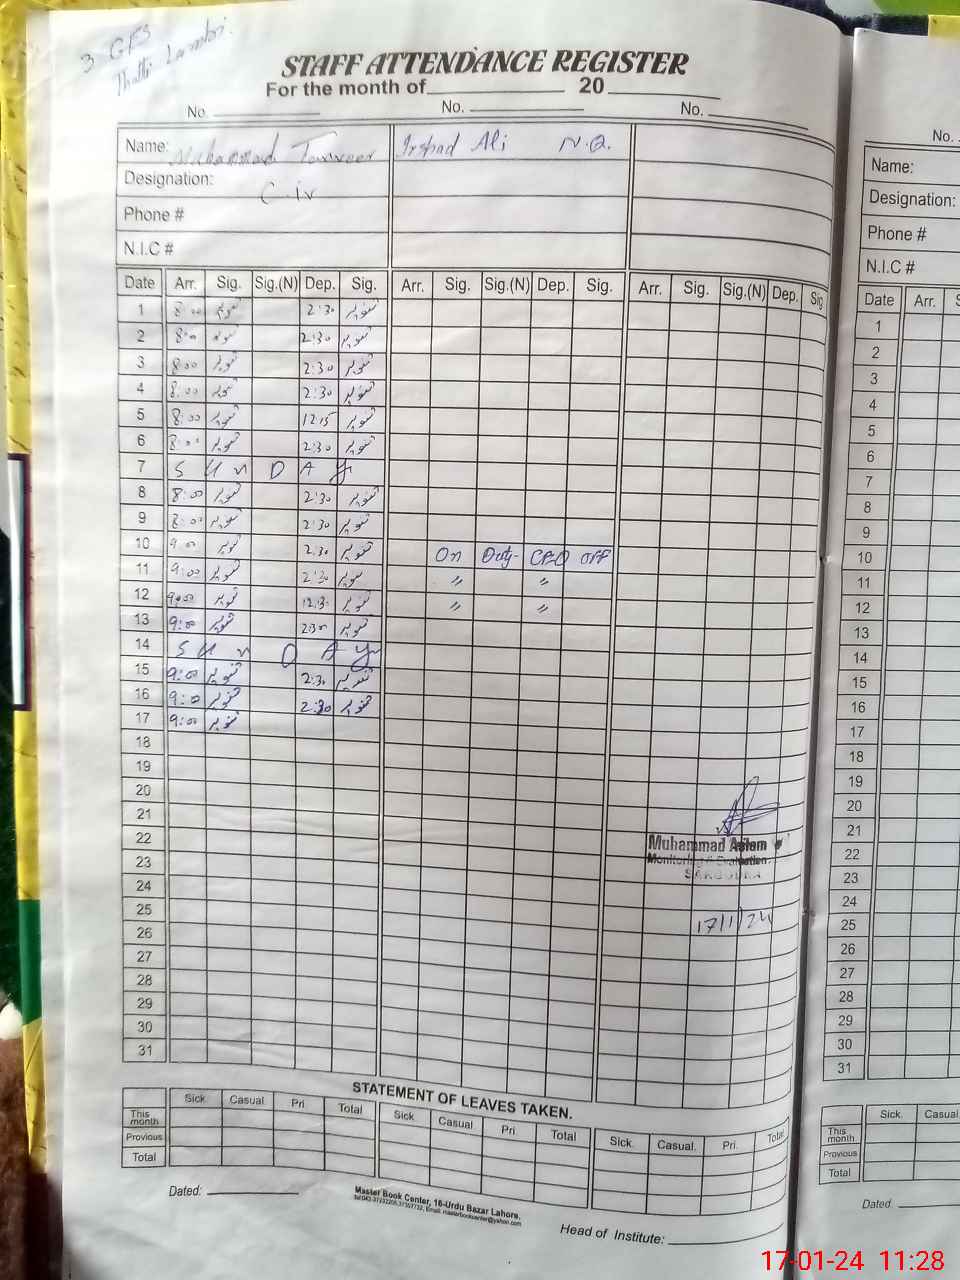 3 GFS
Thatti Lambi.
STAFF ATTENDANCE REGISTER
For the month of 20
No. No. No.
Name: Muhammad Tanveer Irshad Ali N.Q.
Designation: C-iv
Phone #
N.I.C #
Date Arr. Sig. Sig.(N) Dep. Sig. Arr. Sig. Sig.(N) Dep. Sig. Arr. Sig. Sig.(N) Dep. Sig
1 8:00 تنویر 2:30 تنویر
2 8:00 تنویر 2:30 تنویر
3 8:00 تنویر 2:30 تنویر
4 8:00 تنویر 2:30 تنویر
5 8:00 تنویر 12:15 تنویر
6 8:00 تنویر 2:30 تنویر
7 S U n D A y
8 8:00 تنویر 2:30 تنویر
9 8:00 تنویر 2:30 تنویر
10 9:00 تنویر 2:30 تنویر On Duty- CEO OFF
11 9:00 تنویر 2:30 تنویر " "
12 9:00 تنویر 12:30 تنویر " "
13 9:00 تنویر 2:30 تنویر
14 S U n D A y
15 9:00 تنویر 2:30 تنویر
16 9:00 تنویر 2:30 تنویر
17 9:00 تنویر
18
19
20
21
22
23
24
25
26
27
28
29
30
31
Muhammad Aslam
Monitoring & Evaluation
SARGODHA
17/1/24
STATEMENT OF LEAVES TAKEN.
Sick. Casual Pri Total Sick. Casual Pri Total Sick. Casual. Pri. Total
This month
Previous
Total
Dated:
Master Book Center, 16-Urdu Bazar Lahore.
Head of Institute:
No.
Name:
Designation:
Phone #
N.I.C #
Date Arr. S
1
2
3
4
5
6
7
8
9
10
11
12
13
14
15
16
17
18
19
20
21
22
23
24
25
26
27
28
29
30
31
Sick. Casual
This month
Previous
Total
Dated
17-01-24 11:28